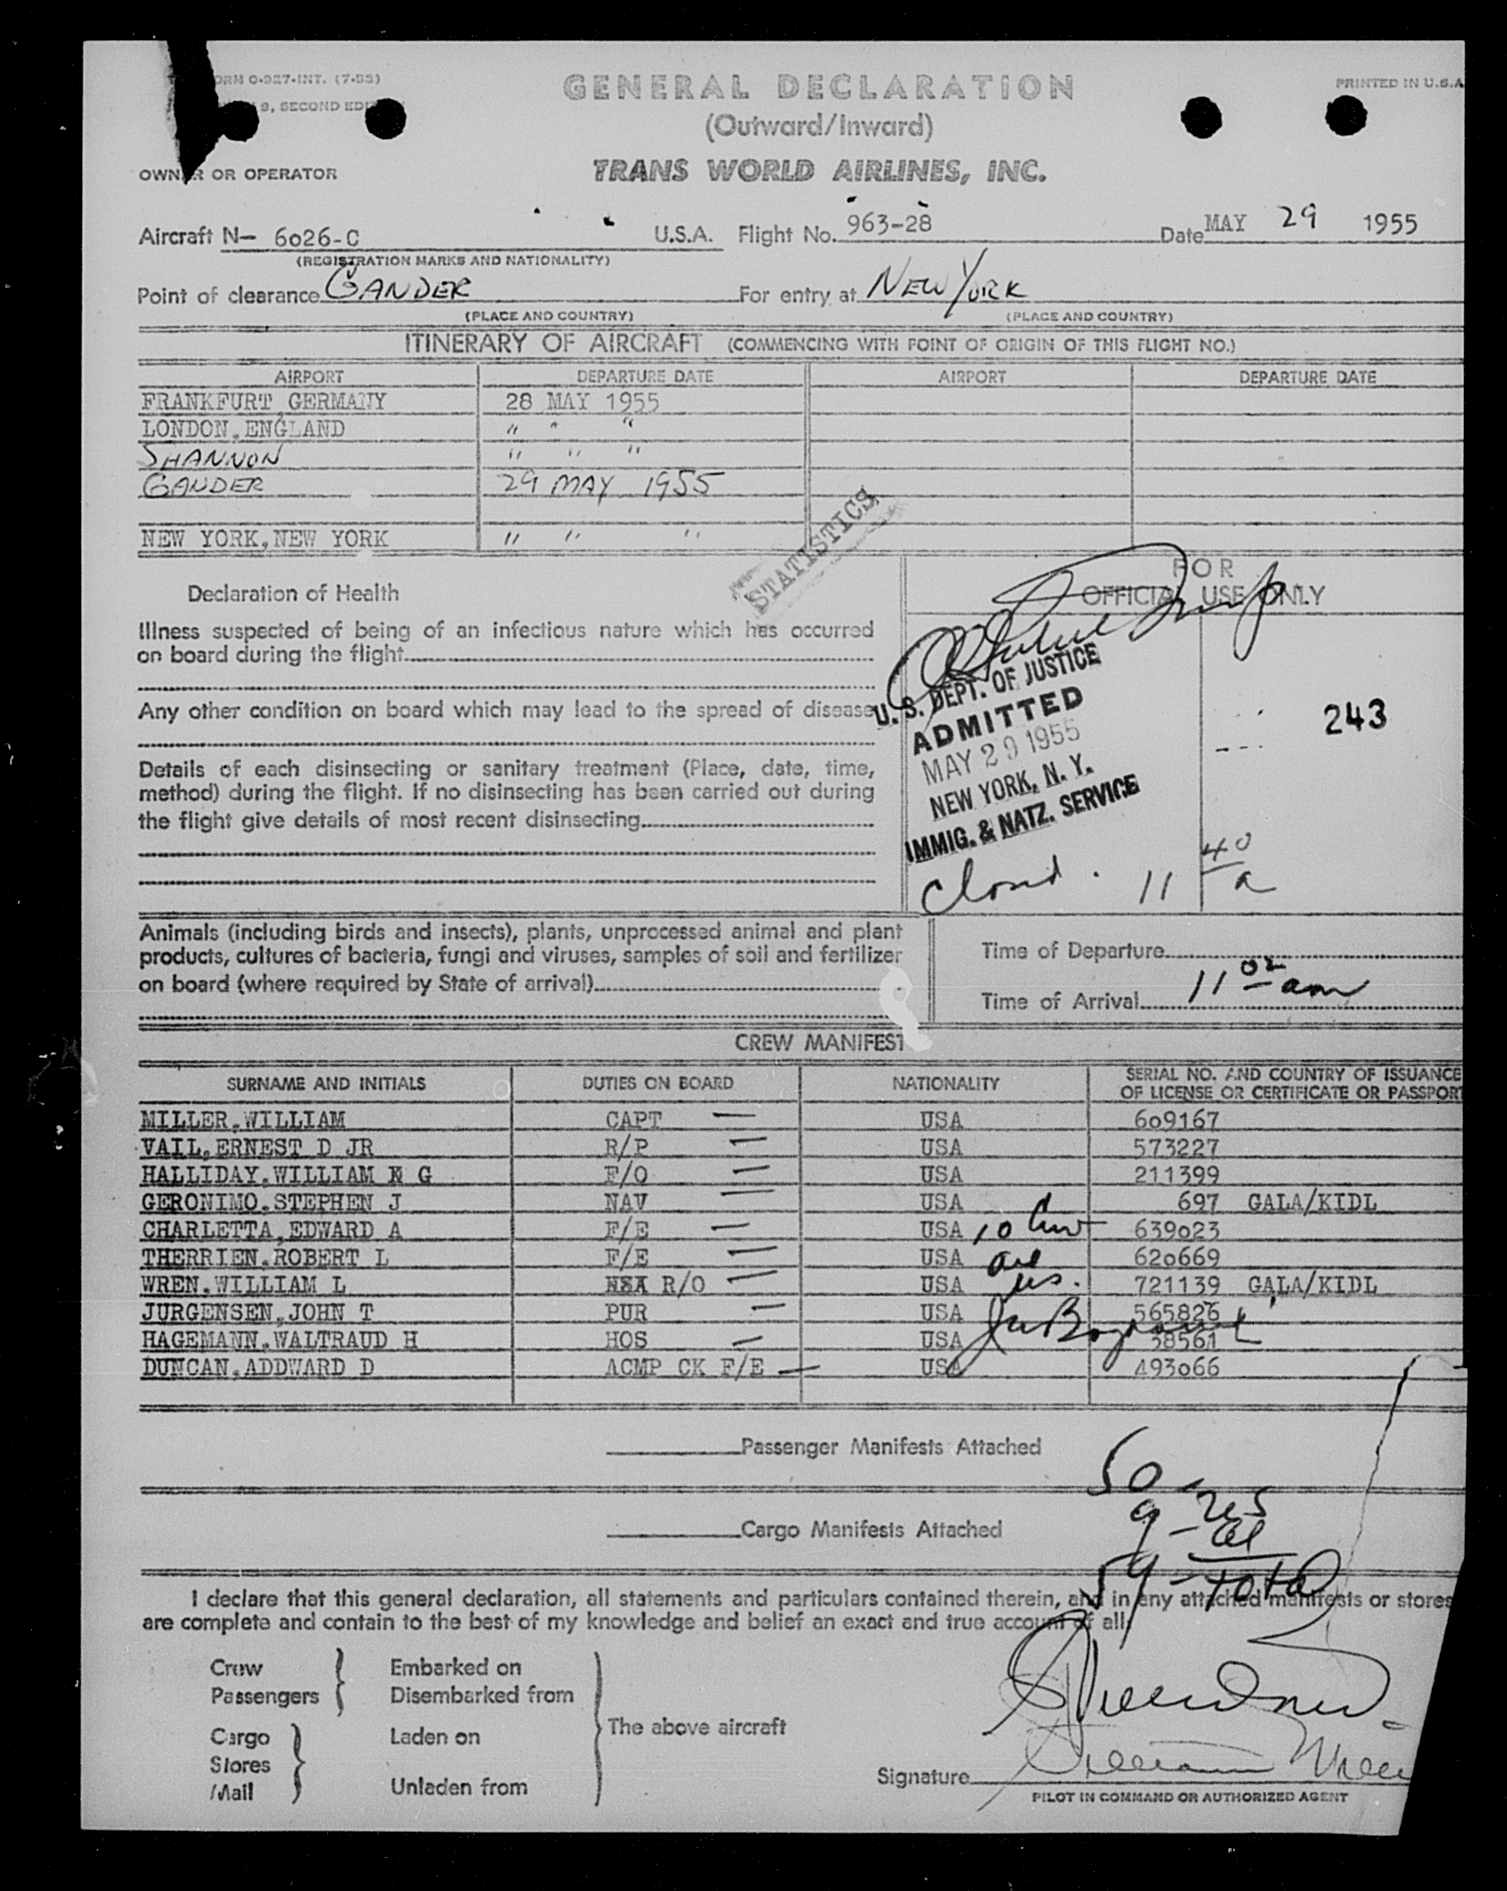 FORM O-927-INT. (7-55)
GENERAL DECLARATION
PRINTED IN U.S.A
9, SECOND EDITION
(Outward/Inward)
OWNER OR OPERATOR
TRANS WORLD AIRLINES, INC.
Aircraft N- 6026-C U.S.A. Flight No. 963-28 Date MAY 29 1955
(REGISTRATION MARKS AND NATIONALITY)
Point of clearance GANDER For entry at NEW YORK
(PLACE AND COUNTRY) (PLACE AND COUNTRY)
ITINERARY OF AIRCRAFT (COMMENCING WITH POINT OF ORIGIN OF THIS FLIGHT NO.)
AIRPORT DEPARTURE DATE AIRPORT DEPARTURE DATE
FRANKFURT, GERMANY 28 MAY 1955
LONDON, ENGLAND " " "
SHANNON " " "
GANDER 29 MAY 1955
NEW YORK, NEW YORK " " "
STATISTICS
Declaration of Health
FOR
OFFICIAL USE ONLY
Illness suspected of being of an infectious nature which has occurred
on board during the flight
Any other condition on board which may lead to the spread of disease
Details of each disinsecting or sanitary treatment (Place, date, time,
method) during the flight. If no disinsecting has been carried out during
the flight give details of most recent disinsecting
U. S. DEPT. OF JUSTICE
ADMITTED
MAY 29 1955
NEW YORK, N. Y.
IMMIG. & NATZ. SERVICE
243
11 40 a
Animals (including birds and insects), plants, unprocessed animal and plant
products, cultures of bacteria, fungi and viruses, samples of soil and fertilizer
on board (where required by State of arrival)
Time of Departure
Time of Arrival 11 02 am
CREW MANIFEST
SURNAME AND INITIALS DUTIES ON BOARD NATIONALITY SERIAL NO. AND COUNTRY OF ISSUANCE
OF LICENSE OR CERTIFICATE OR PASSPORT
MILLER, WILLIAM CAPT USA 609167
VAIL, ERNEST D JR R/P USA 573227
HALLIDAY, WILLIAM N G F/O USA 211399
GERONIMO, STEPHEN J NAV USA 697 GALA/KIDL
CHARLETTA, EDWARD A F/E USA 639023
THERRIEN, ROBERT L F/E USA 620669
WREN, WILLIAM L R/O USA 721139 GALA/KIDL
JURGENSEN, JOHN T PUR USA 565826
HAGEMANN, WALTRAUD H HOS USA 38561
DUNCAN, ADDWARD D ACMP CK F/E USA 493066
Passenger Manifests Attached
50
Cargo Manifests Attached
9 -
59 - total
I declare that this general declaration, all statements and particulars contained therein, and in any attached manifests or stores
are complete and contain to the best of my knowledge and belief an exact and true account of all
Crew
Passengers
Embarked on
Disembarked from
Cargo
Stores
Mail
Laden on
Unladen from
The above aircraft
Signature
PILOT IN COMMAND OR AUTHORIZED AGENT